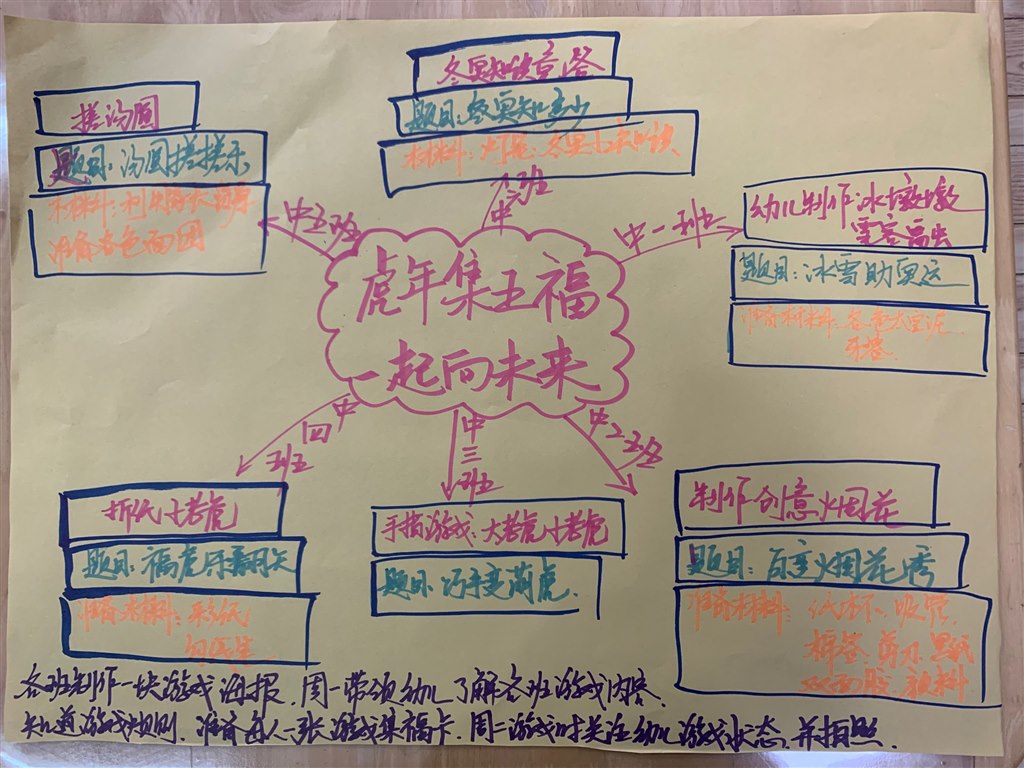 冬奥知识竞答
题目:冬奥知多少
材料:
中六班
搓汤圆
题目:汤圆搓搓乐
材料:利用
准备各色面团
中五班
幼儿制作:冰墩墩
雪容融
题目:冰雪助奥运
准备材料:各色太空泥
牙签
中一班
虎年集五福
一起向未来
中四班
折纸小老虎
题目:福虎
准备材料:彩纸
勾线笔
中三班
手指游戏:大老虎小老虎
题目:巧手变萌虎.
中二班
制作创意烟花
题目:百变烟花秀
准备材料:纸杯、吸管
棉签、剪刀、黑纸
双面胶、颜料
各班制作一块游戏海报.周一带领幼儿了解各班游戏内容.
知道游戏规则.准备每人一张游戏集福卡.周二游戏时关注幼儿游戏状态,并拍照.